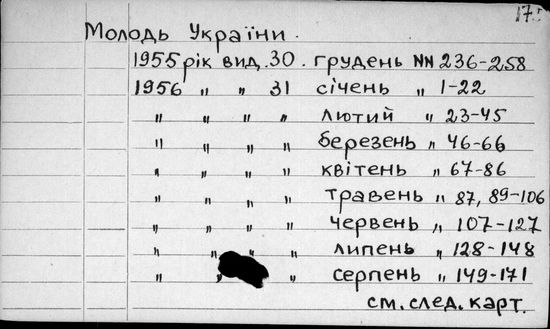 17.
Молодь України.
1955 рік вид. 30. грудень NN 236-258
1956 „ „ 31 січень „ 1-22
„ „ „ „ лютий „ 23-45
„ „ „ „ березень „ 46-66
„ „ „ „ квітень „ 67-86
„ „ „ „ травень „ 87, 89-106
„ „ „ „ червень „ 107-127
„ „ „ „ липень „ 128-148
„ „ „ серпень „ 149-171
см. след. карт.